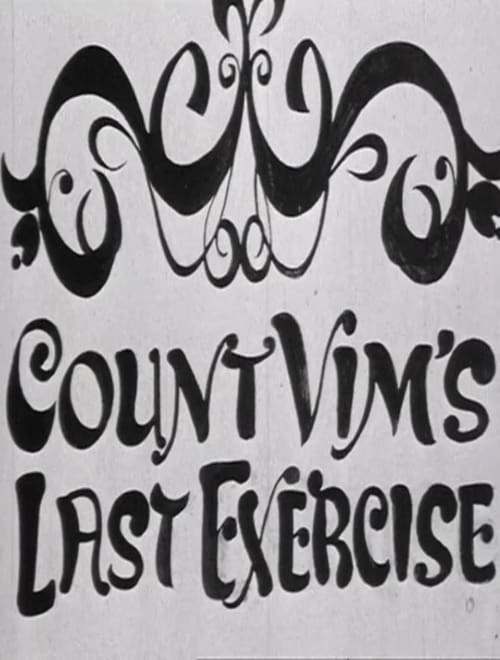 COUNT VIM'S
LAST EXERCISE